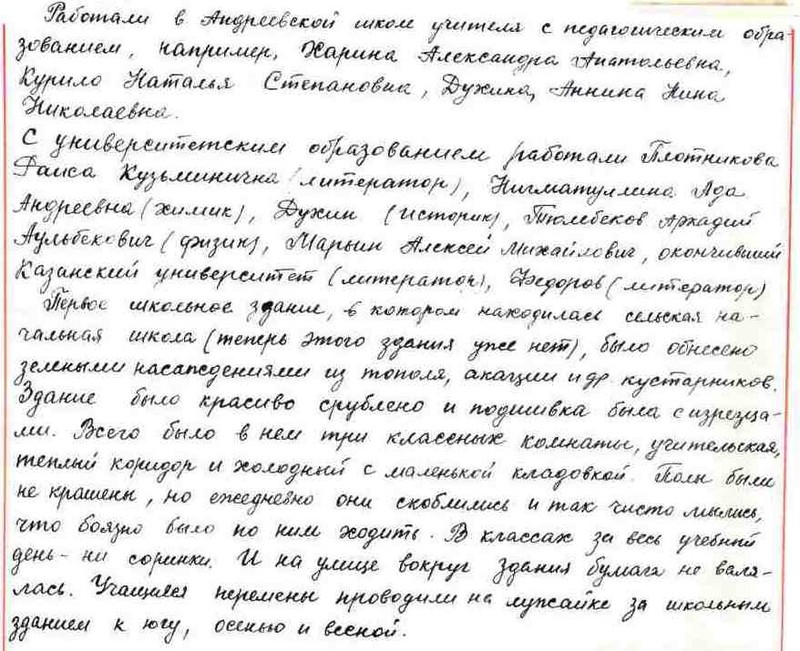 Работали в Андреевской школе учителя с педагогическим обра-
зованием, например, Харина Александра Анатольевна,
Курило Наталья Степановна, Духина, Аннина Нина
Николаевна.
С университетским образованием работали Плотникова
Раиса Кузьминична (литератор), Нигматуллина Ада
Андреевна (химик), Духин (историк), Тюлебеков Аркадий
Аульбекович (физик), Марьин Алексей Михайлович, окончивший
Казанский университет (литератор), Федоров (литератор)
Первое школьное здание, в котором находилась сельская на-
чальная школа (теперь этого здания уже нет), было обнесено
зелеными насаждениями из тополя, акации и др. кустарников.
Здание было красиво срублено и подшивка была с изрезца-
ми. Всего было в нем три классных комнаты, учительская,
теплый коридор и холодный с маленькой кладовкой. Полы были
не крашены, но ежедневно они скоблились и так чисто мылись,
что боязно было по ним ходить. В классах за весь учебный
день - ни соринки. И на улице вокруг здания бумага не валя-
лась. Учащиеся перемены проводили на лужайке за школьным
зданием к югу, осенью и весной.